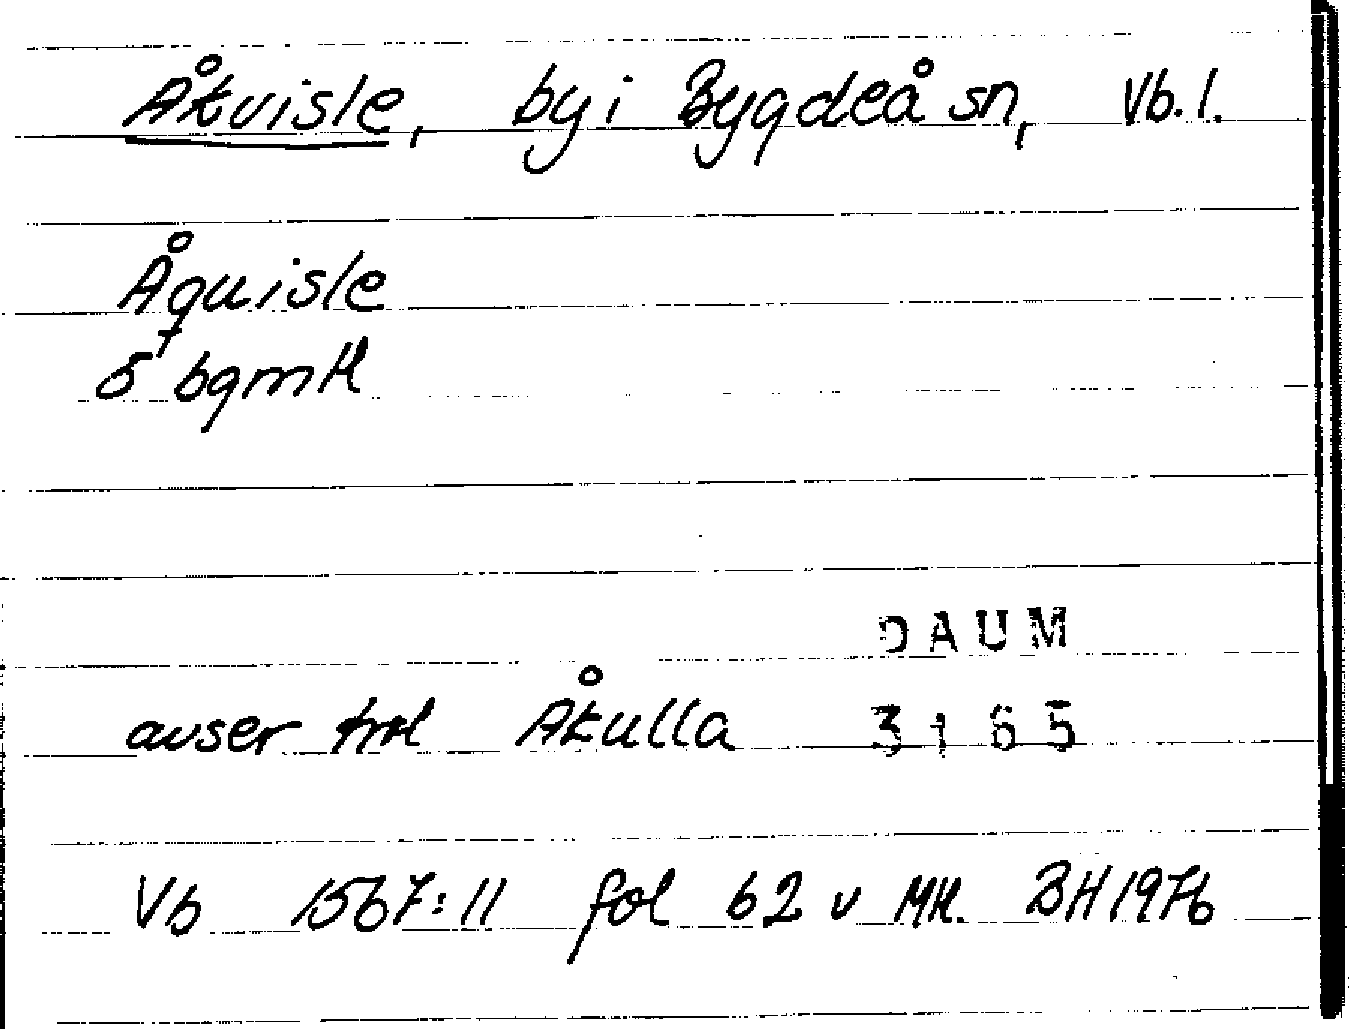 Åkvisle, by i Bygdeå sn, Vb. l.
Åquisle
5 bgmtl
DAUM
avser trol Åkulla 3165
Vb 1567:11 fol 62 v MH. BH 1976